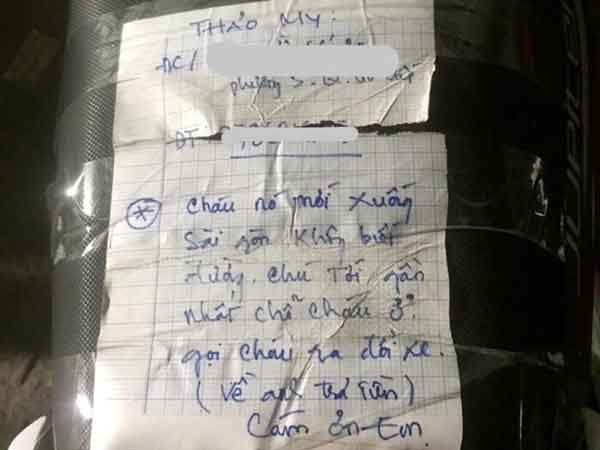 THẢO MY:
ĐC/
phường 5. Q.
ĐT
* Cháu nó mới xuống
Sài gòn không biết
đường. chú Tới gần
nhất chỗ cháu
gọi cháu ra đổi xe.
(Về anh trả tiền)
Cám ơn Em.